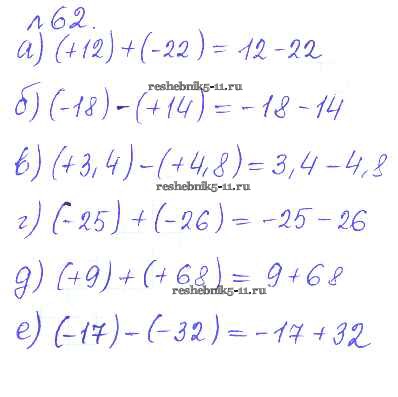 №62.
а) (+12) + (-22) = 12 - 22
reshebnik5-11.ru
б) (-18) - (+14) = -18 - 14
в) (+3,4) - (+4,8) = 3,4 - 4,8
reshebnik5-11.ru
г) (-25) + (-26) = -25 - 26
д) (+9) + (+68) = 9 + 68
reshebnik5-11.ru
е) (-17) - (-32) = -17 + 32